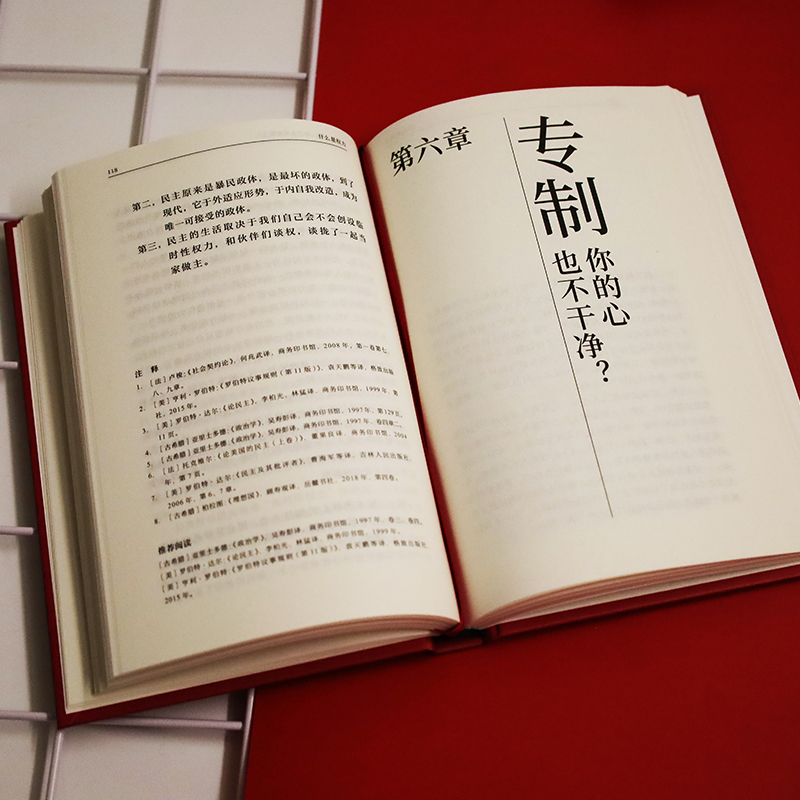 118
什么是权力
第二，民主原来是暴民政体，是最坏的政体，到了
现代，它于外适应形势，于内自我改造，成为
唯一可接受的政体。
第三，民主的生活取决于我们自己会不会创设临
时性权力，和伙伴们谈权，谈拢了一起当
家做主。
注 释
1. ［法］卢梭：《社会契约论》，何兆武译，商务印书馆，2008年，第一卷第七、
八、九章。
2. ［美］亨利·罗伯特：《罗伯特议事规则（第11版）》，袁天鹏等译，格致出版
社，2015年。
3. ［美］罗伯特·达尔：《论民主》，李柏光、林猛译，商务印书馆，1999年，第
11页。
4. ［古希腊］亚里士多德：《政治学》，吴寿彭译，商务印书馆，1997年，第129页。
5. ［古希腊］亚里士多德：《政治学》，吴寿彭译，商务印书馆，1997年，卷四章二。
6. ［法］托克维尔：《论美国的民主（上卷）》，董果良译，商务印书馆，2004
年，第7页。
7. ［美］罗伯特·达尔：《民主及其批评者》，曹海军等译，吉林人民出版社，
2006年，第6、7章。
8. ［古希腊］柏拉图：《理想国》，顾寿观译，岳麓书社，2018年，第四卷。
推荐阅读
［古希腊］亚里士多德：《政治学》，吴寿彭译，商务印书馆，1997年，卷三、卷四。
［美］罗伯特·达尔：《论民主》，李柏光、林猛译，商务印书馆，1999年。
［美］亨利·罗伯特：《罗伯特议事规则（第11版）》，袁天鹏等译，格致出版社，
2015年。
第六章
专制
你的心
也不干净？